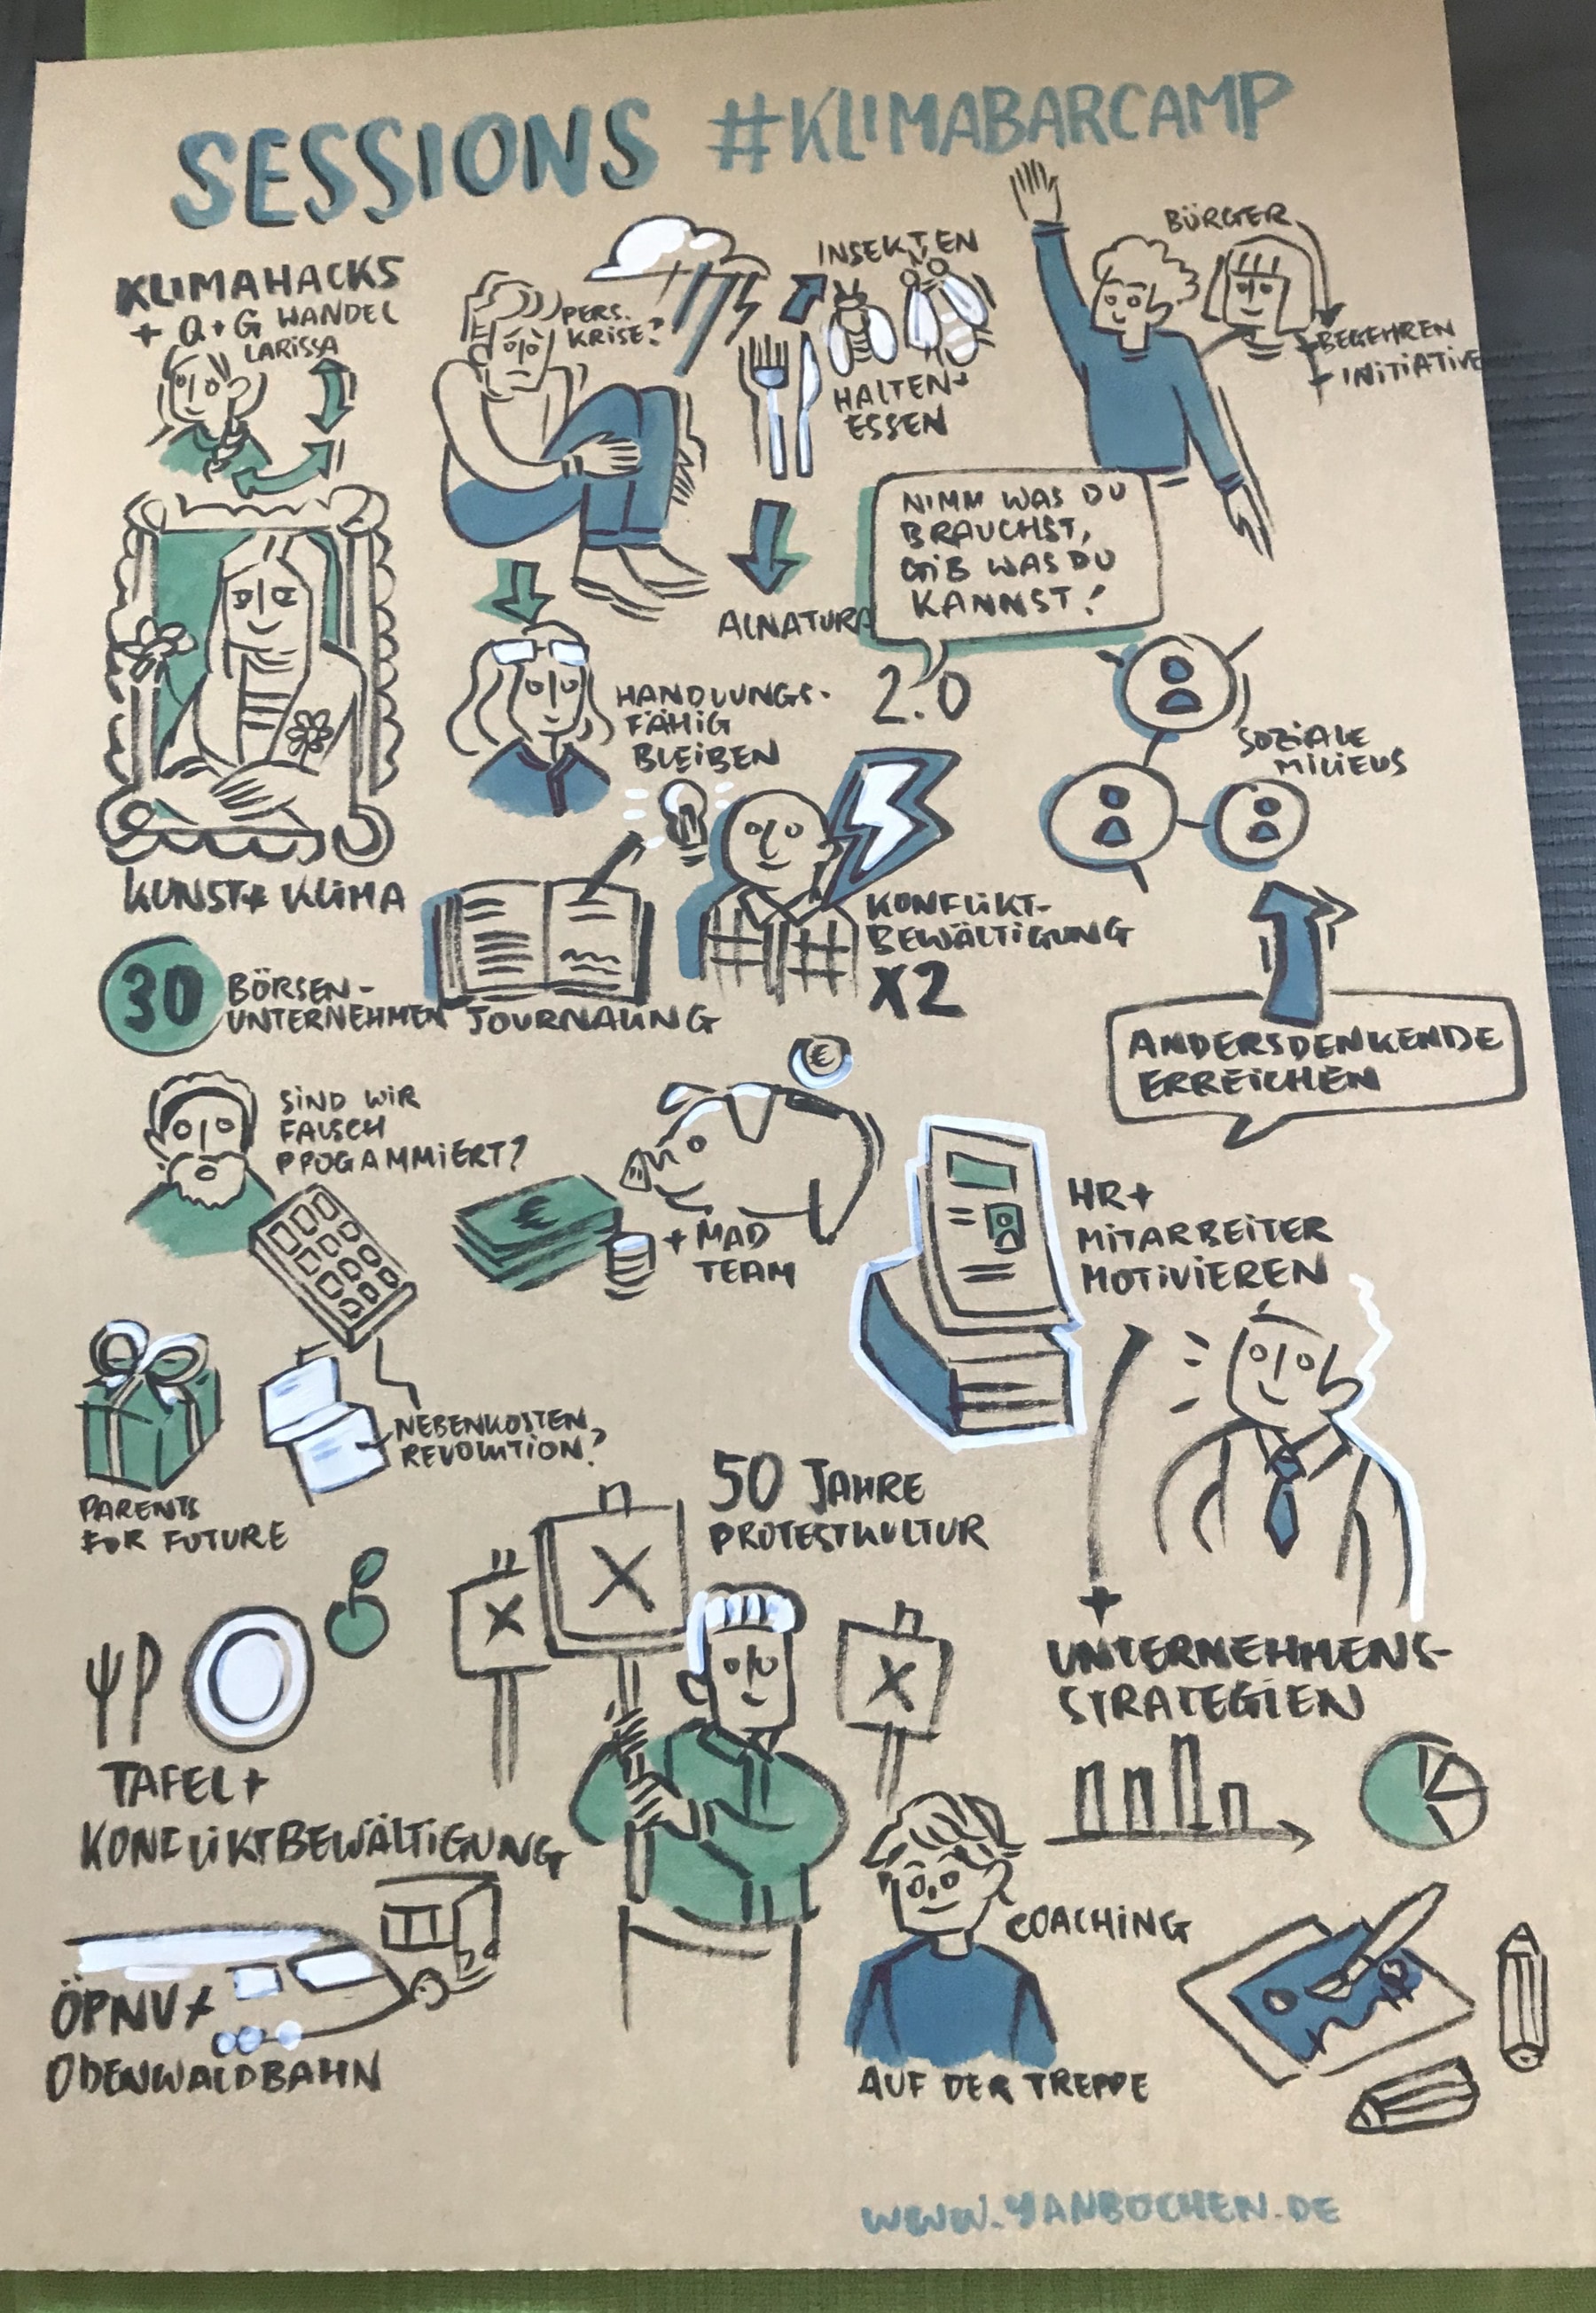 SESSIONS #KLIMABARCAMP
KLIMAHACKS
+ Q+G WANDEL
LARISSA
PERS.
KRISE?
INSEKTEN
HALTEN+
ESSEN
BÜRGER
BEGEHREN
INITIATIVE
NIMM WAS DU
BRAUCHST,
GIB WAS DU
KANNST!
ALNATURA
2.0
HANDLUNGS-
FÄHIG
BLEIBEN
SOZIALE
MILIEUS
KUNST+ KLIMA
KONFLIKT-
BEWÄLTIGUNG
X2
30 BÖRSEN-
UNTERNEHMEN
JOURNALING
ANDERSDENKENDE
ERREICHEN
SIND WIR
FALSCH
PPOGAMMIERT?
€
€
+ MAD
TEAM
HR+
MITARBEITER
MOTIVIEREN
NEBENKOSTEN
REVOLUTION?
PARENTS
FOR FUTURE
50 JAHRE
PROTESTKULTUR
X
X
X
+
UNTERNEHMENS-
STRATEGIEN
TAFEL+
KONFLIKTBEWÄLTIGUNG
COACHING
AUF DER TREPPE
ÖPNV+
ODENWALDBAHN
WWW.YANBOCHEN.DE